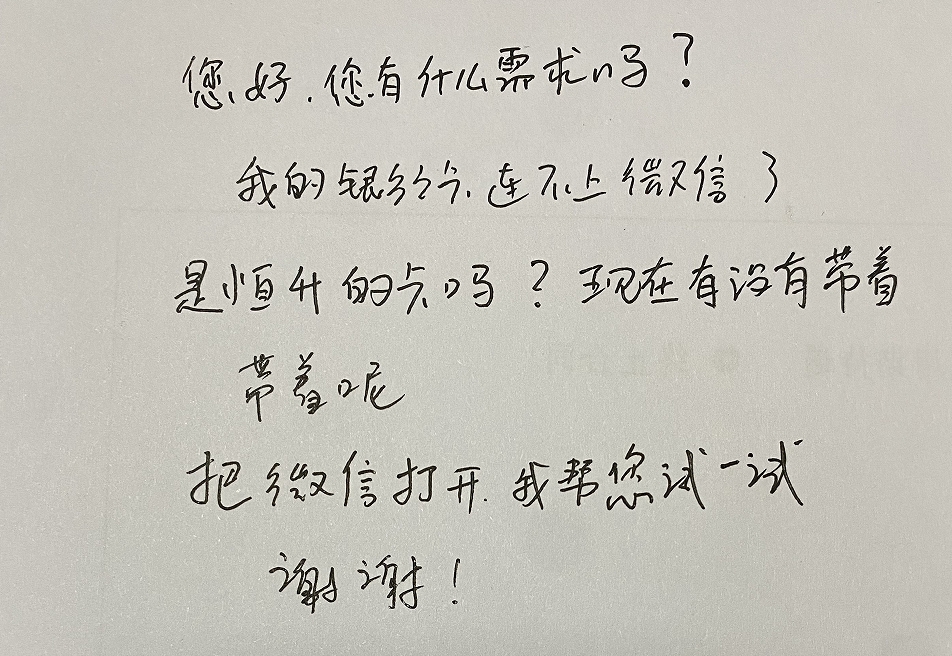 您好.您有什么需求吗?
我的银行卡.连不上微信了
是恒升的卡吗?现在有没有带着
带着呢
把微信打开.我帮您试一试
谢谢!